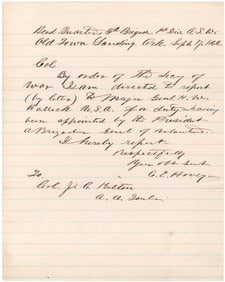 Head Quarters 3d Brigade 1st Div. A.S.W.
Old Town Landing Ark. Sept 1, 1862
Col
By order of the Secy of
War I am directed to report
(by letter) to Major Genl H. W.
Halleck U.S.A. for duty having
been appointed by the President
a Brigadier Genl of Volunteers.
I hereby report
Respectfully
Your obt Svt
A.P. Hovey
To
Col. J. C. Kelton
A. A. Genl